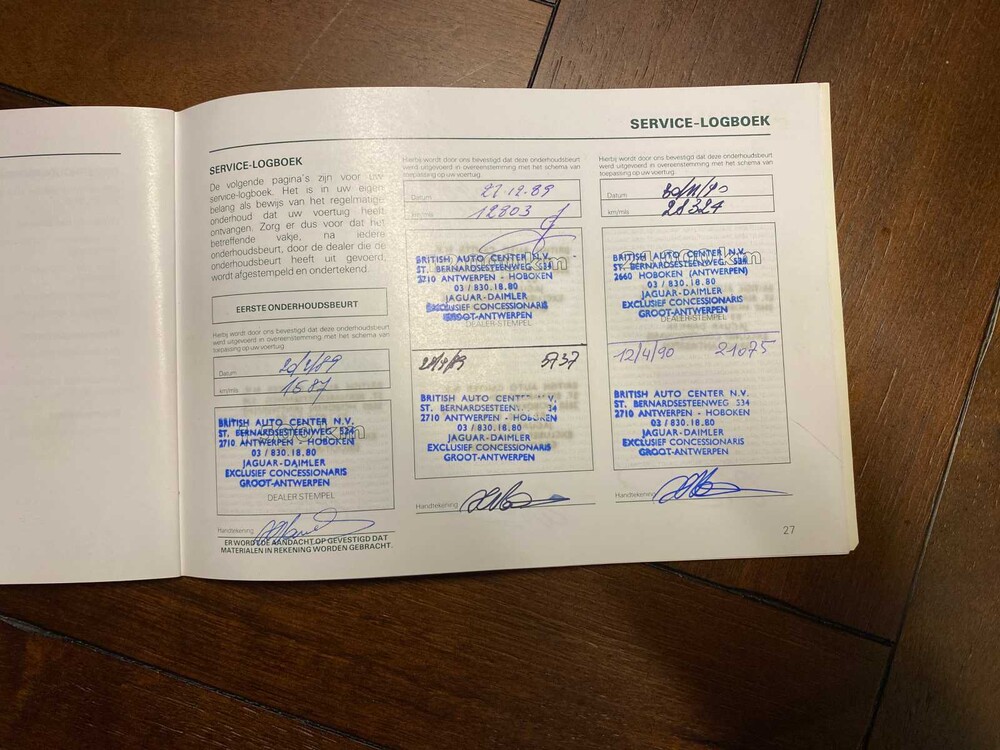 SERVICE-LOGBOEK
SERVICE-LOGBOEK
De volgende pagina's zijn voor uw
service-logboek. Het is in uw eigen
belang als bewijs van het regelmatige
onderhoud dat uw voertuig heeft
ontvangen. Zorg er dus voor dat het
betreffende vakje, na iedere
onderhoudsbeurt, door de dealer die de
onderhoudsbeurt heeft uit gevoerd,
wordt afgestempeld en ondertekend.
EERSTE ONDERHOUDSBEURT
Hierbij wordt door ons bevestigd dat deze onderhoudsbeurt
werd uitgevoerd in overeenstemming met het schema van
toepassing op uw voertuig.
Datum 20/2/89
km/mls 1587
BRITISH AUTO CENTER N.V.
ST. BERNARDSESTEENWEG 534
2710 ANTWERPEN - HOBOKEN
03 / 830.18.80
JAGUAR-DAIMLER
EXCLUSIEF CONCESSIONARIS
GROOT-ANTWERPEN
DEALER STEMPEL
Handtekening
ER WORDT DE AANDACHT OP GEVESTIGD DAT
MATERIALEN IN REKENING WORDEN GEBRACHT.
Hierbij wordt door ons bevestigd dat deze onderhoudsbeurt
werd uitgevoerd in overeenstemming met het schema van
toepassing op uw voertuig.
Datum 27.12.89
km/mls 12803
BRITISH AUTO CENTER N.V.
ST. BERNARDSESTEENWEG 534
2710 ANTWERPEN - HOBOKEN
03 / 830.18.80
JAGUAR-DAIMLER
EXCLUSIEF CONCESSIONARIS
GROOT-ANTWERPEN
DEALER-STEMPEL
5737
BRITISH AUTO CENTER N.V.
ST. BERNARDSESTEEN 34
2710 ANTWERPEN - HOBOKEN
03 / 830.18.80
JAGUAR-DAIMLER
EXCLUSIEF CONCESSIONARIS
GROOT-ANTWERPEN
Handtekening
Hierbij wordt door ons bevestigd dat deze onderhoudsbeurt
werd uitgevoerd in overeenstemming met het schema van
toepassing op uw voertuig.
Datum 30/11/90
km/mls 28324
BRITISH AUTO CENTER N.V.
ST. BERNARDSESTEENWEG 534
2660 HOBOKEN (ANTWERPEN)
03 / 830.18.80
JAGUAR-DAIMLER
EXCLUSIEF CONCESSIONARIS
GROOT-ANTWERPEN
DEALER-STEMPEL
12/4/90 21075
BRITISH AUTO CENTER N.V.
ST. BERNARDSESTEENWEG 534
2710 ANTWERPEN - HOBOKEN
03 / 830.18.80
JAGUAR-DAIMLER
EXCLUSIEF CONCESSIONARIS
GROOT-ANTWERPEN
Handtekening
27